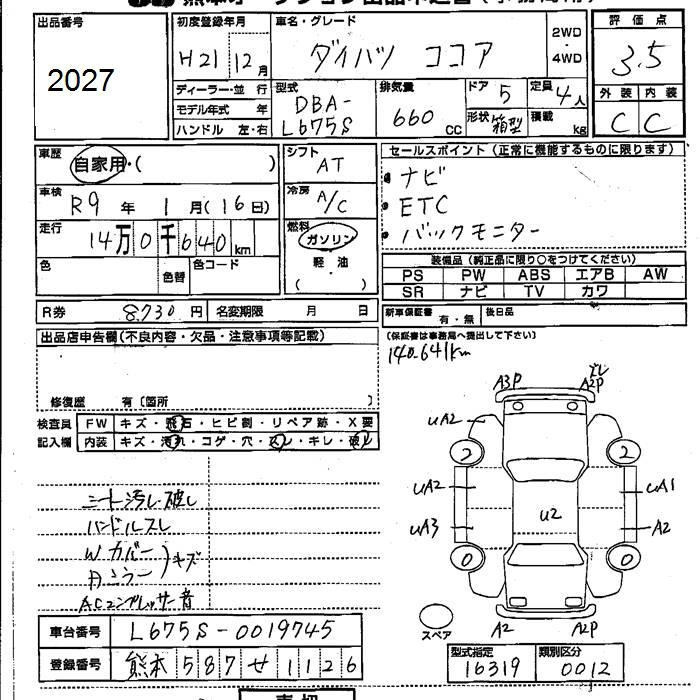 出品番号
2027
初度登録年月
H21 12月
車名・グレード
ダイハツ ココア
2WD
4WD
評価点
3.5
外装 内装
C C
ディーラー・並 行
モデル年式 年
ハンドル 左・右
型式
DBA-
L675S
排気量
660 CC
ドア 5
定員 4人
形状 箱型
積載 kg
車歴
自家用・( )
車検
R9 年 1 月(16日)
走行
14万0千640km
色
色替
色コード
シフト
AT
冷房
A/C
燃料
ガソリン
軽・油
( )
セールスポイント(正常に機能するものに限ります)
・ナビ
・ETC
・バックモニター
装備品(純正品に限り○をつけてください)
PS PW ABS エアB AW
SR ナビ TV カワ
R券 8,730 円
名変期限 月 日
新車保証書 有・無
後日品
(保証書は事務局へ提出して下さい)
140,641km
出品店申告欄(不良内容・欠品・注意事項等記載)
修復歴 有〔箇所 〕
検査員
記入欄
FW キズ・飛石・ヒビ割・リペア跡・X要
内装 キズ・汚れ・コゲ・穴・スレ・キレ・破レ
シート汚し・破し
ハンドルスレ
Wカバー
キズ
ACコンプレッサー音
A3P
A2P
UA2
2
2
UA2
UA1
UA3
U2
A2
0
0
スペア
A2
A2P
車台番号 L675S-0019745
登録番号 熊本 587 せ 1126
型式指定
16319
類別区分
0012